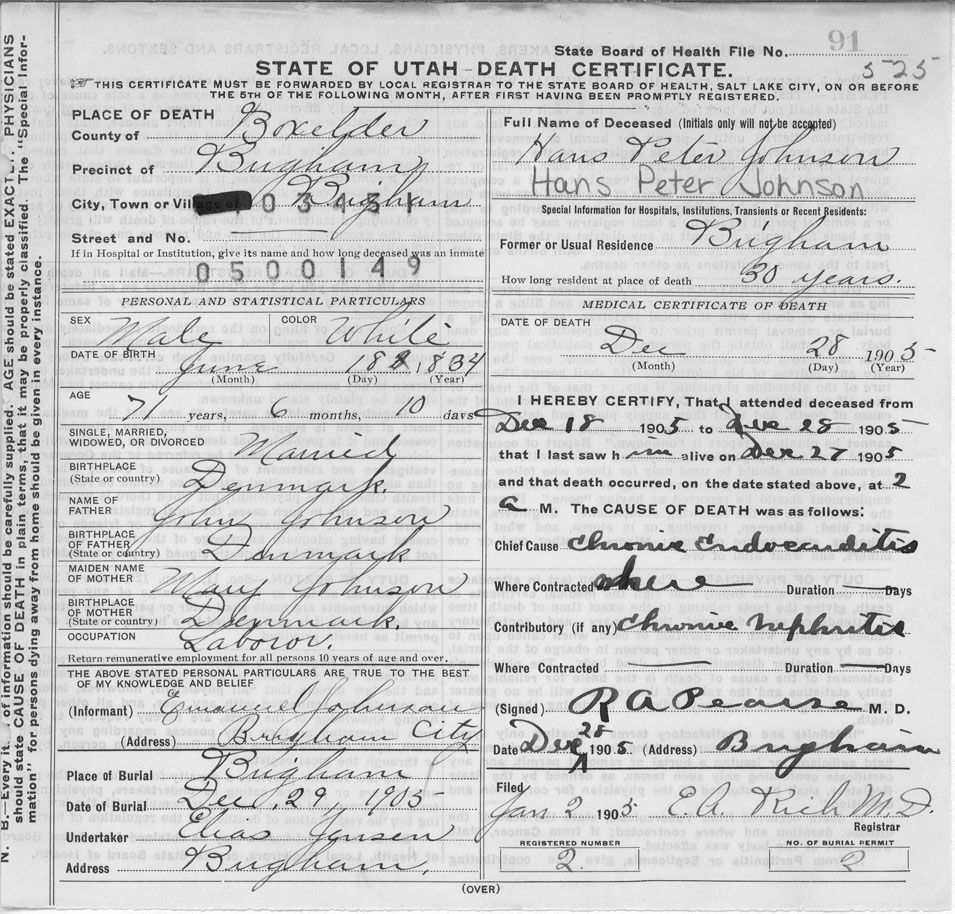 N. B.—Every it of information should be carefully supplied. AGE should be stated EXACTL PHYSICIANS
should state CAUSE OF DEATH in plain terms, that it may be properly classified. The "Special Infor-
mation" for persons dying away from home should be given in every instance.
State Board of Health File No. 91
525
STATE OF UTAH—DEATH CERTIFICATE.
THIS CERTIFICATE MUST BE FORWARDED BY LOCAL REGISTRAR TO THE STATE BOARD OF HEALTH, SALT LAKE CITY, ON OR BEFORE
THE 5TH OF THE FOLLOWING MONTH, AFTER FIRST HAVING BEEN PROMPTLY REGISTERED.
PLACE OF DEATH
County of Boxelder
Precinct of Brigham
City, Town or Village of Brigham
103451
Street and No.
If in Hospital or Institution, give its name and how long deceased was an inmate
0500149
PERSONAL AND STATISTICAL PARTICULARS
SEX Male COLOR White
DATE OF BIRTH June 18, 1834
(Month) (Day) (Year)
AGE 71 years, 6 months, 10 days
SINGLE, MARRIED, WIDOWED, OR DIVORCED Married
BIRTHPLACE (State or country) Denmark.
NAME OF FATHER John Johnson
BIRTHPLACE OF FATHER (State or country) Denmark
MAIDEN NAME OF MOTHER Mary Johnson
BIRTHPLACE OF MOTHER (State or country) Denmark.
OCCUPATION Laboror.
Return remunerative employment for all persons 10 years of age and over.
THE ABOVE STATED PERSONAL PARTICULARS ARE TRUE TO THE BEST
OF MY KNOWLEDGE AND BELIEF
(Informant) Emanuel Johnson
(Address) Brigham City
Place of Burial Brigham
Date of Burial Dec. 29, 1905
Undertaker Elias Jensen
Address Brigham.
Full Name of Deceased (Initials only will not be accepted)
Hans Peter Johnson
Hans Peter Johnson
Special Information for Hospitals, Institutions, Transients or Recent Residents:
Former or Usual Residence Brigham
How long resident at place of death 30 years.
MEDICAL CERTIFICATE OF DEATH
DATE OF DEATH
Dec 28 1905
(Month) (Day) (Year)
I HEREBY CERTIFY, That I attended deceased from
Dec 18 1905 to Dec 28 1905
that I last saw him alive on Dec 27 1905
and that death occurred, on the date stated above, at 2
A M. The CAUSE OF DEATH was as follows:
Chief Cause Chronic Endocarditis
Where Contracted here Duration Days
Contributory (if any) Chronic Nephritis
Where Contracted Duration Days
(Signed) R A Pearse M. D.
Date Dec 28 1905 (Address) Brigham
Filed
Jan 2 1905 E. A. Rich M. D.
Registrar
REGISTERED NUMBER NO. OF BURIAL PERMIT
2. 2
(OVER)